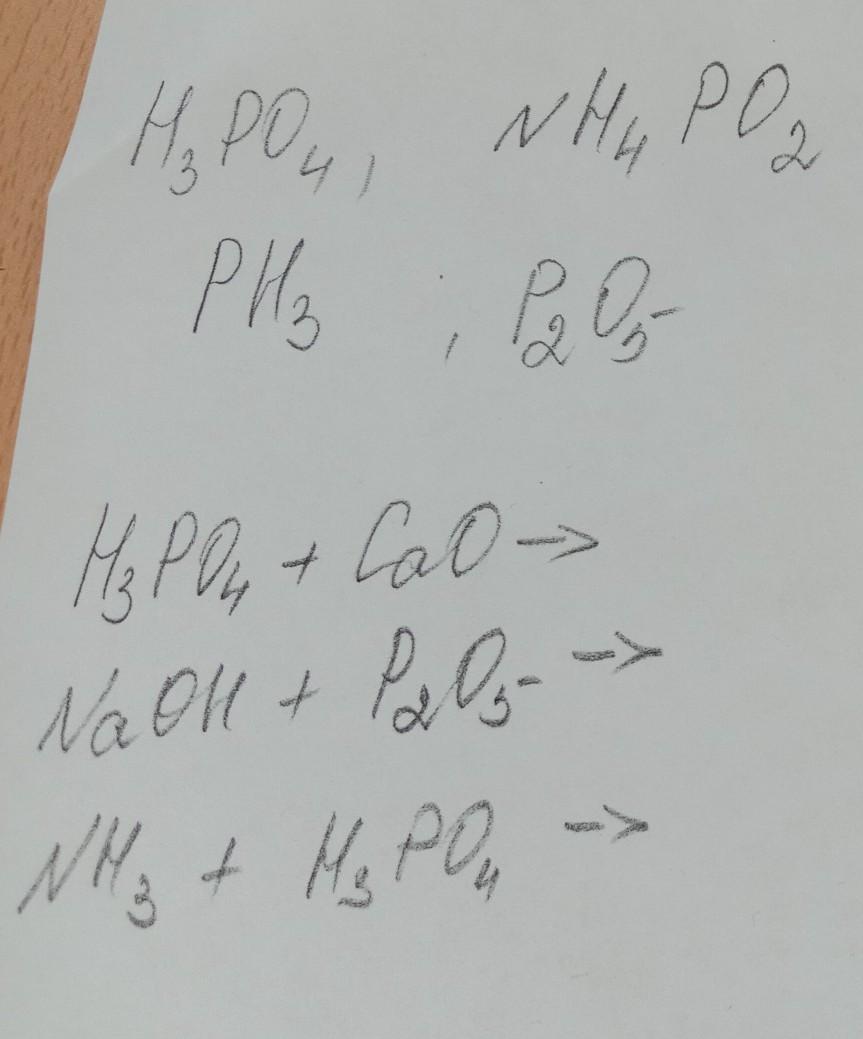 H₃PO₄, NH₄PO₂
PH₃ , P₂O₅
H₃PO₄ + CaO →
NaOH + P₂O₅ →
NH₃ + H₃PO₄ →